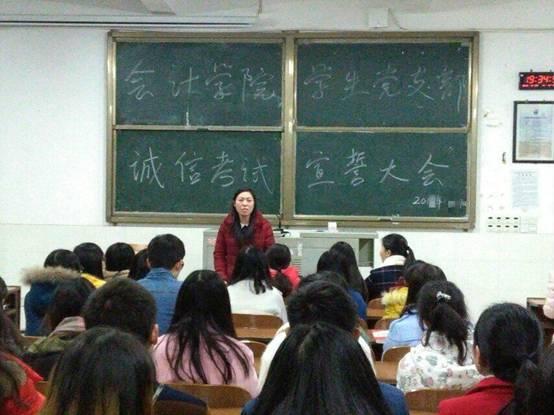 会计学院 学生党支部
诚信考试 宣誓大会
19:34:5